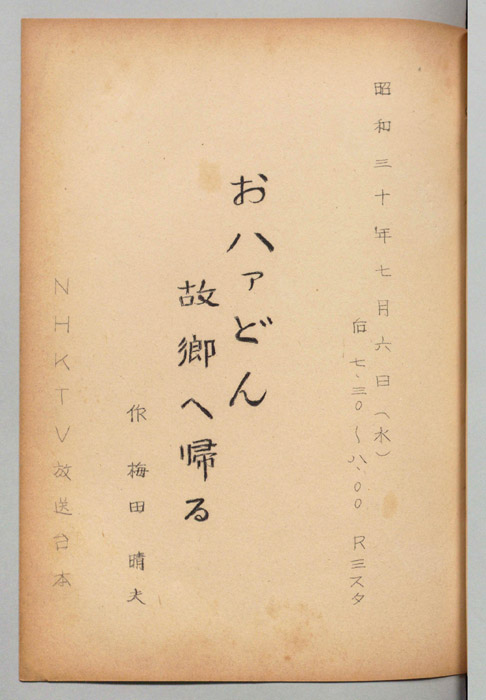 昭和三十年七月六日(水)
后七.三〇〜八.〇〇 Rミスタ
おハァどん
故郷へ帰る
作 梅田晴夫
NHKTV放送台本